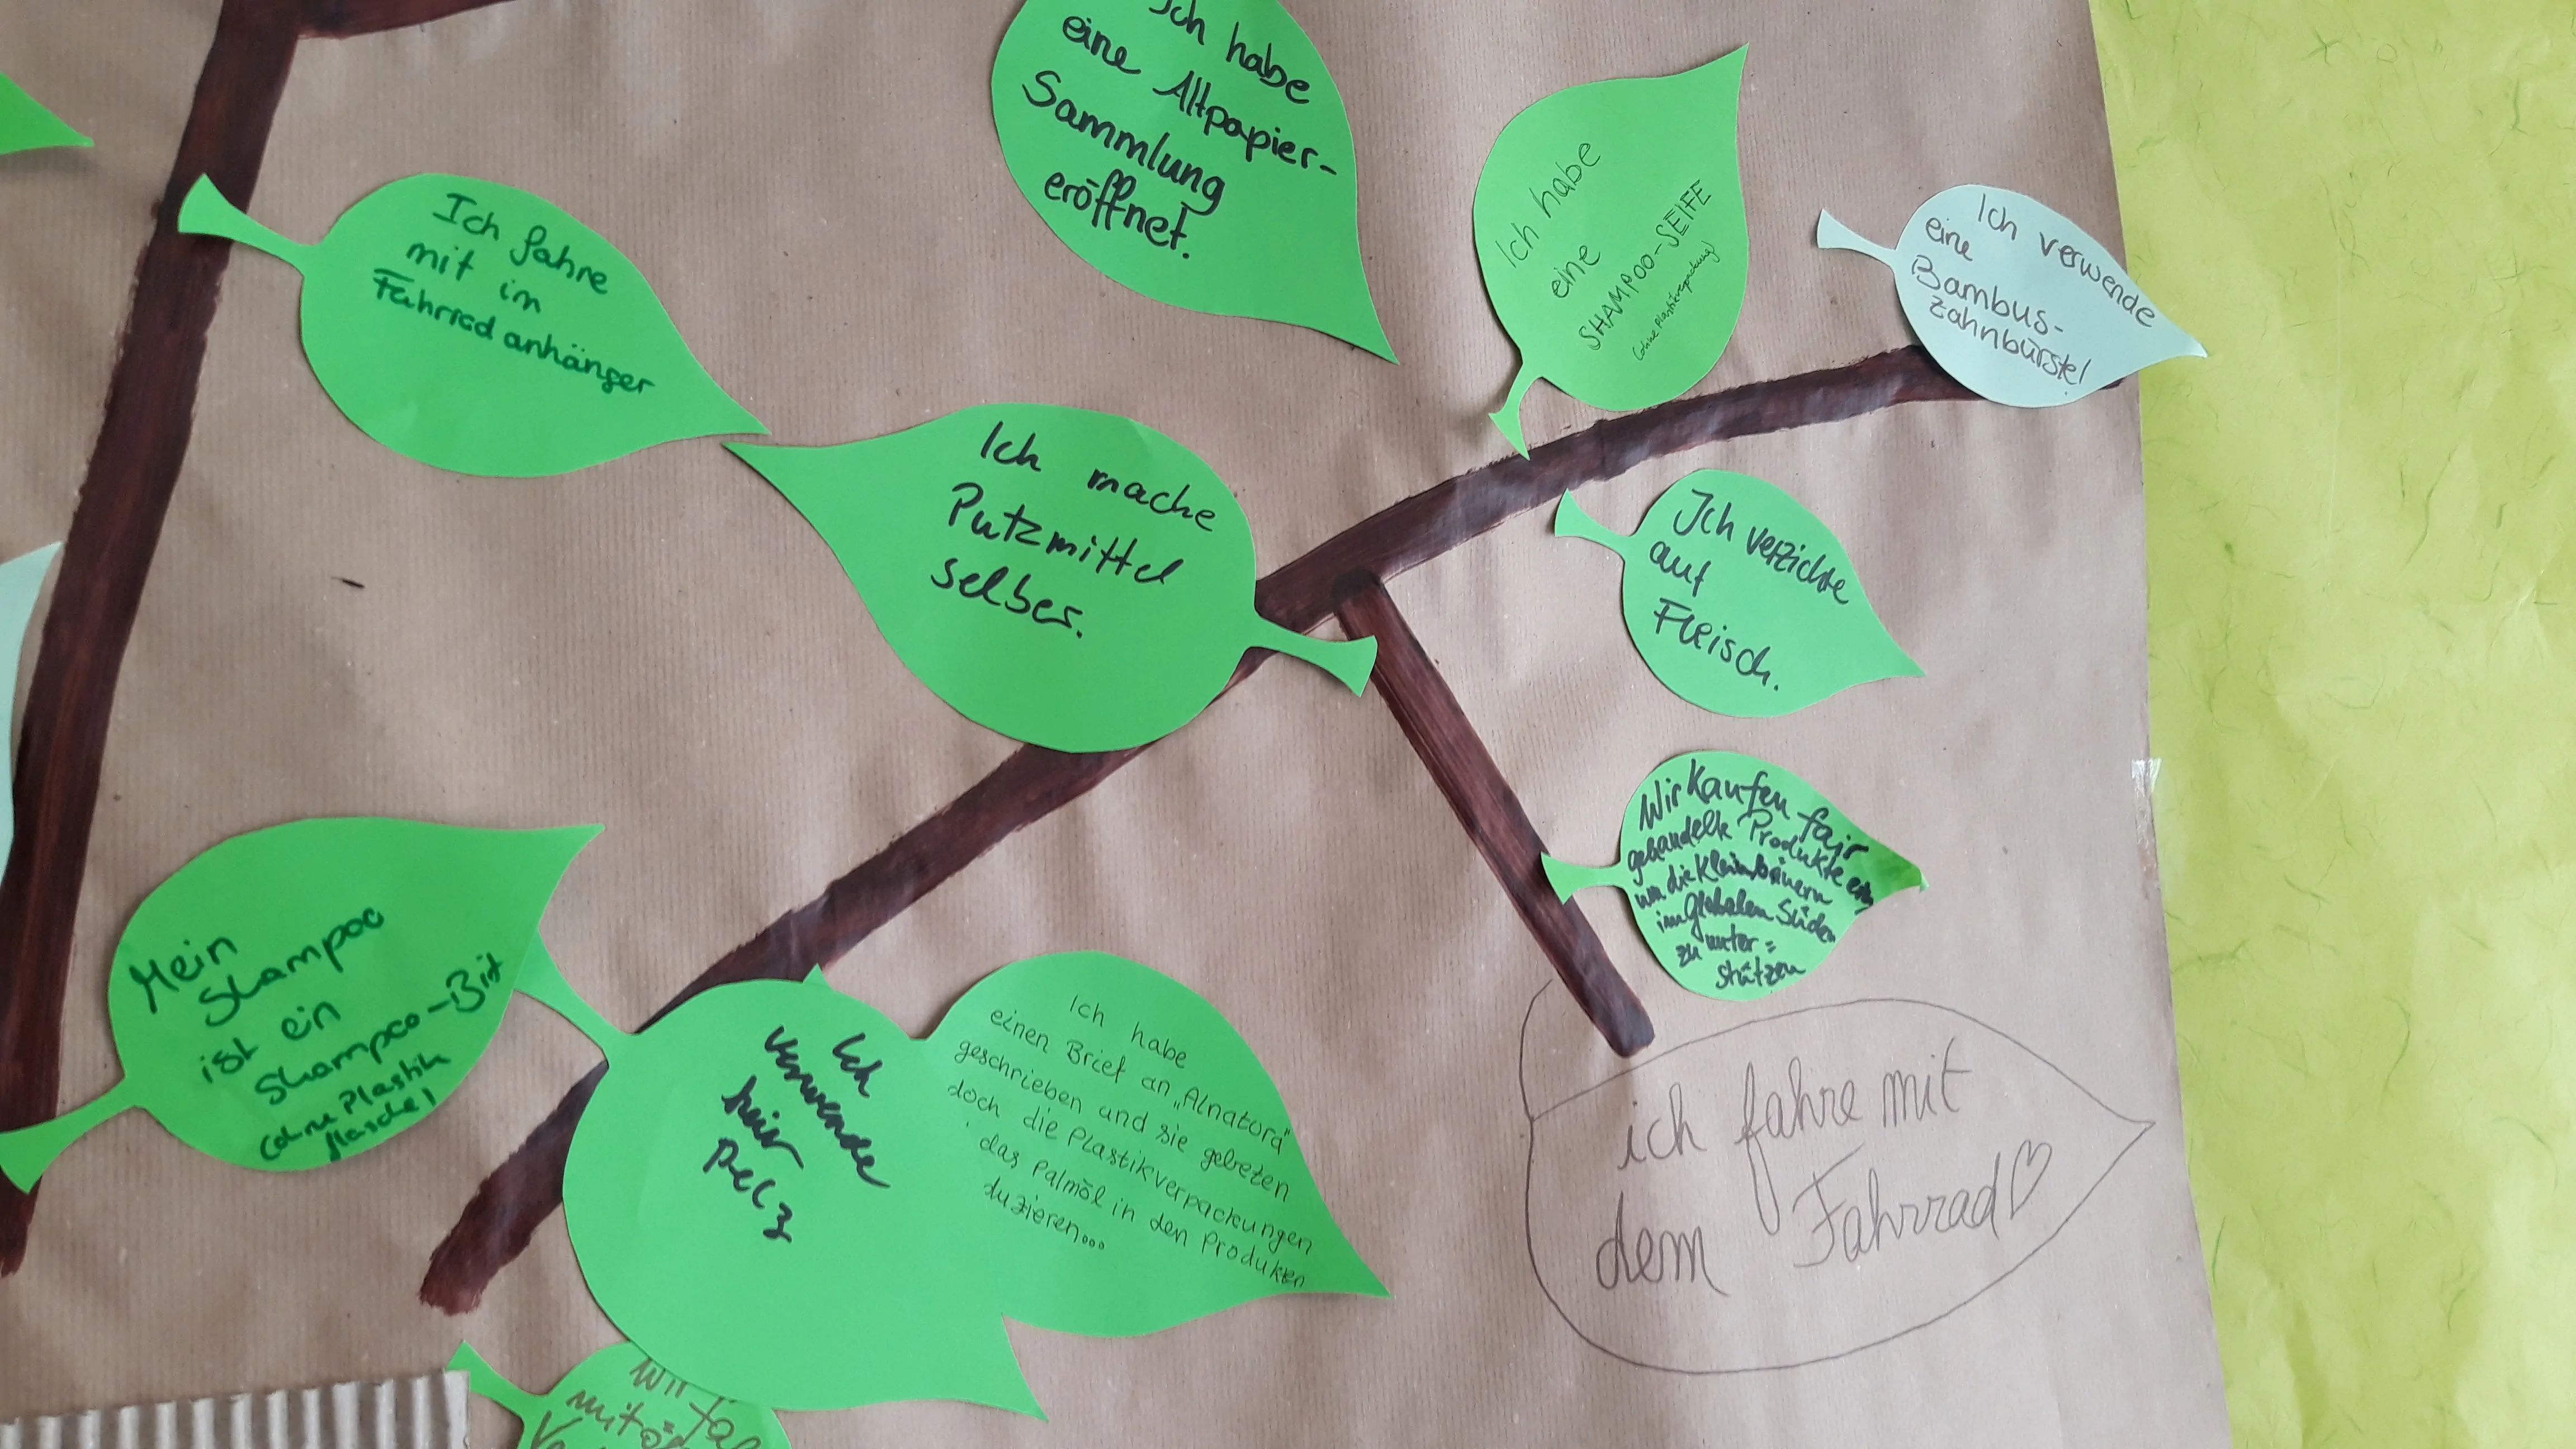 Ich habe
eine Altpapier-
Sammlung
eröffnet.
Ich habe
eine
SHAMPOO-SEIFE
(ohne Plastikverpackung)
Ich verwende
eine
Bambus-
zahnbürste!
Ich fahre
mit im
Fahrradanhänger
Ich mache
Putzmittel
selber.
Ich verzichte
auf
Fleisch.
Wir kaufen fair
gehandelte Produkte ein
um die Kleinbäuern
im globalen Süden
zu unter=
stützen
Mein
Shampoo
ist ein
Shampoo-Bist
(ohne Plastik
flasche)
Ich
verwende
kein
Pelz
Ich habe
einen Brief an „Alnatura"
geschrieben und sie gebeten
doch die Plastikverpackungen
das Palmöl in den Produkten
duzieren...
ich fahre mit
dem Fahrrad♡
Wir